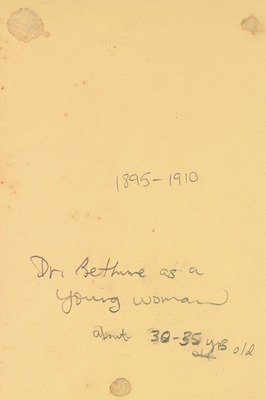 1895-1910
Dr. Bethune as a
young woman
about 30-35 yrs old